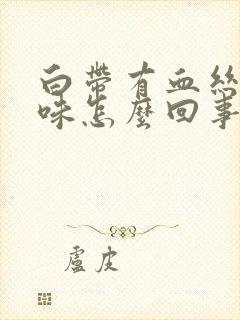 白帶有血絲
味怎麼回事
盧皮